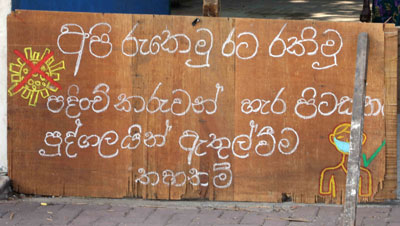 අපි රැකෙමු රට රකිමු
පදිංචි කරුවන් හැර
පුද්ගලයින් ඇතුල්වීම
තහනම්